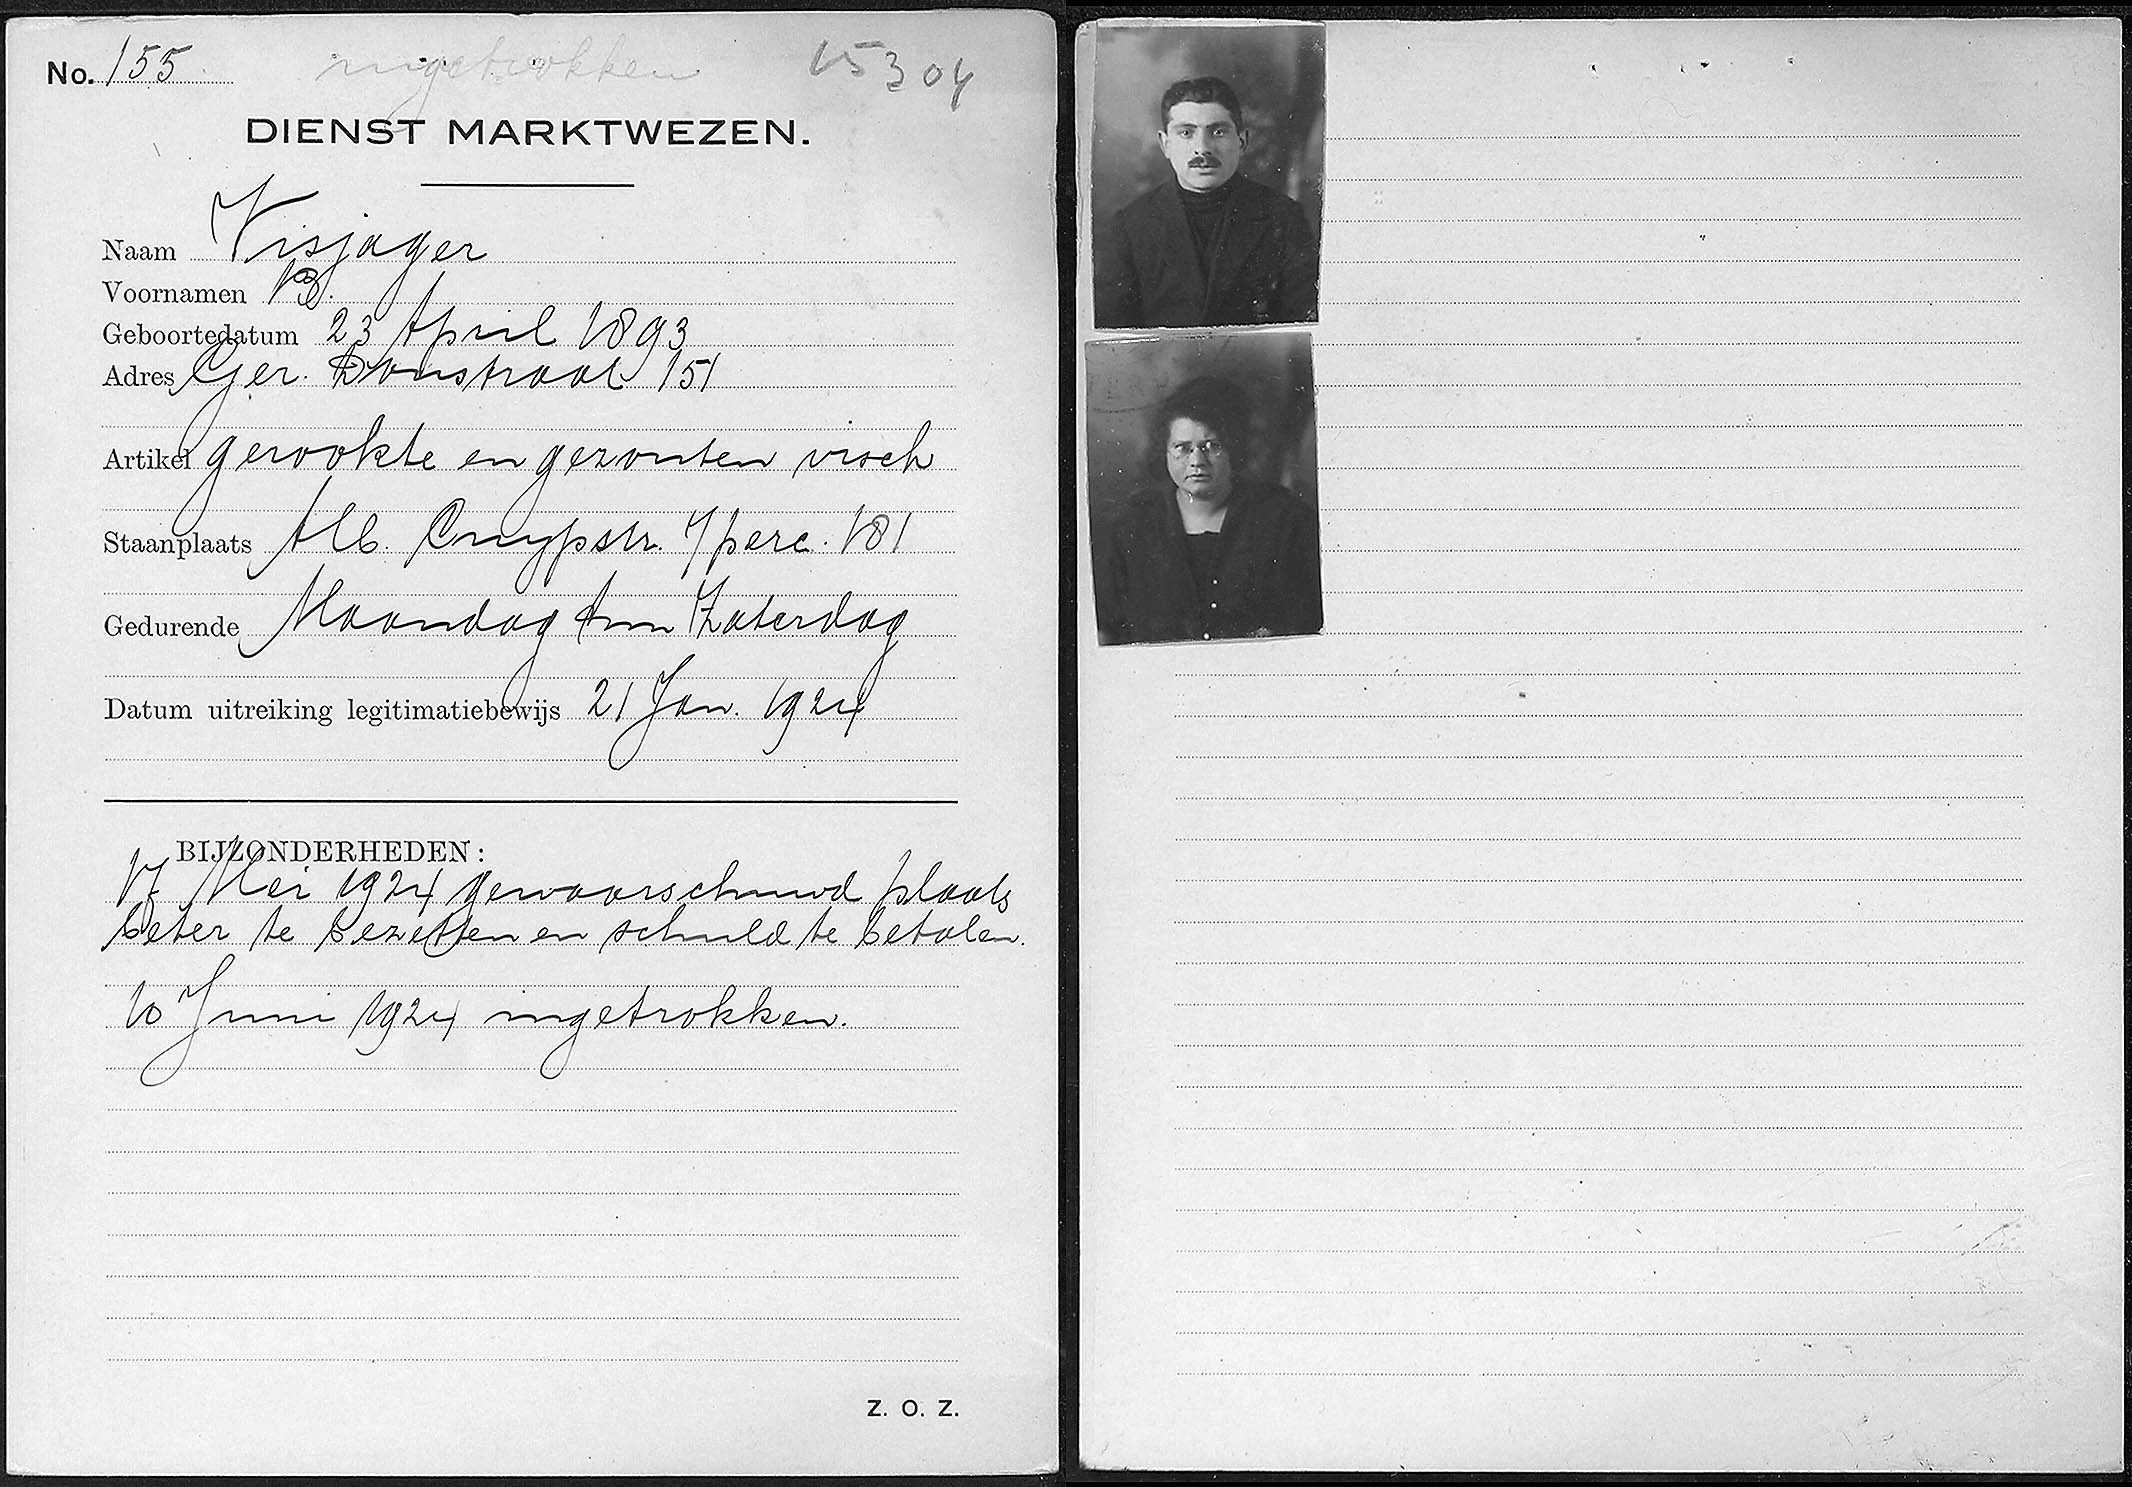 No. 155
ingetrokken
15304
DIENST MARKTWEZEN.
Naam Visjager
Voornamen B.
Geboortedatum 23 April 1893
Adres Ger. Doustraat 151
Artikel gerookte en gezouten visch
Staanplaats Alb. Cuypstr. 7/perc. 181
Gedurende Maandag t/m Zaterdag
Datum uitreiking legitimatiebewijs 21 Jan. 1924
BIJZONDERHEDEN:
17 Mei 1924 gewaarschuwd plaats
beter te bezetten en schuld te betalen.
10 Juni 1924 ingetrokken.
Z. O. Z.